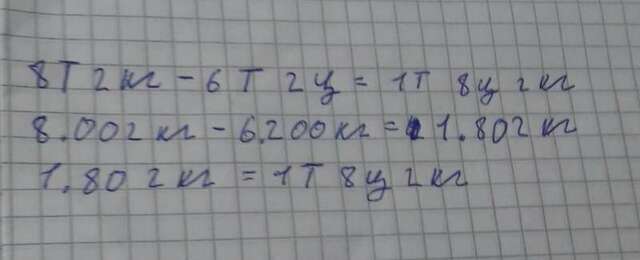 8т 2 кг - 6 т 2ц = 1т 8ц 2кг
8.002кг - 6.200кг = 1.802кг
1.802кг = 1т 8ц 2кг